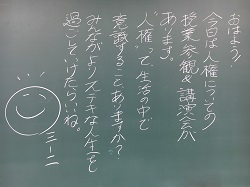 おはよう!
今日は人権についての
授業参観&講演会が
あります。
"人権"って、生活の中で
意識すること、ありますか?
みんながよりステキな人生を
過ごしていけたらいいね。